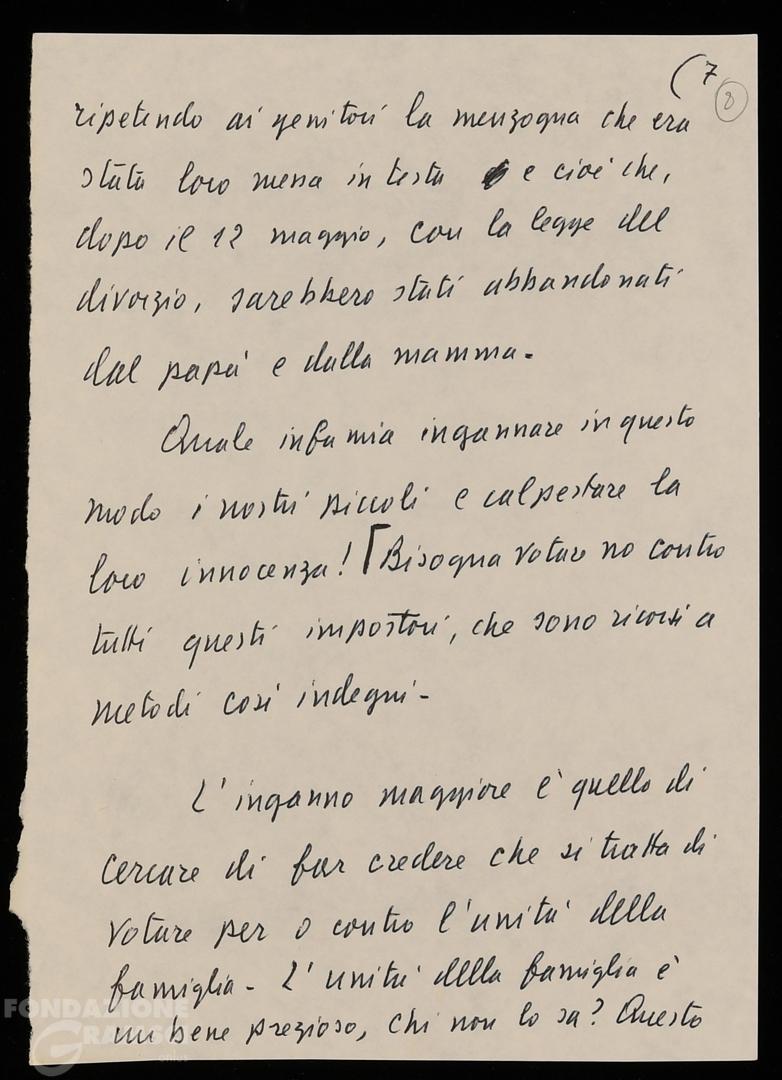 (7
8
ripetendo ai genitori la menzogna che era
stata loro messa in testa e cioè che,
dopo il 12 maggio, con la legge del
divorzio, sarebbero stati abbandonati
dal papà e dalla mamma.
Quale infamia ingannare in questo
modo i nostri piccoli e calpestare la
loro innocenza! [Bisogna votare no contro
tutti questi impostori, che sono ricorsi a
metodi così indegni.
L'inganno maggiore è quello di
cercare di far credere che si tratta di
votare per o contro l'unità della
famiglia. L'unità della famiglia è
un bene prezioso, chi non lo sa? Questo
FONDAZIONE
GRAMSCI
onlus